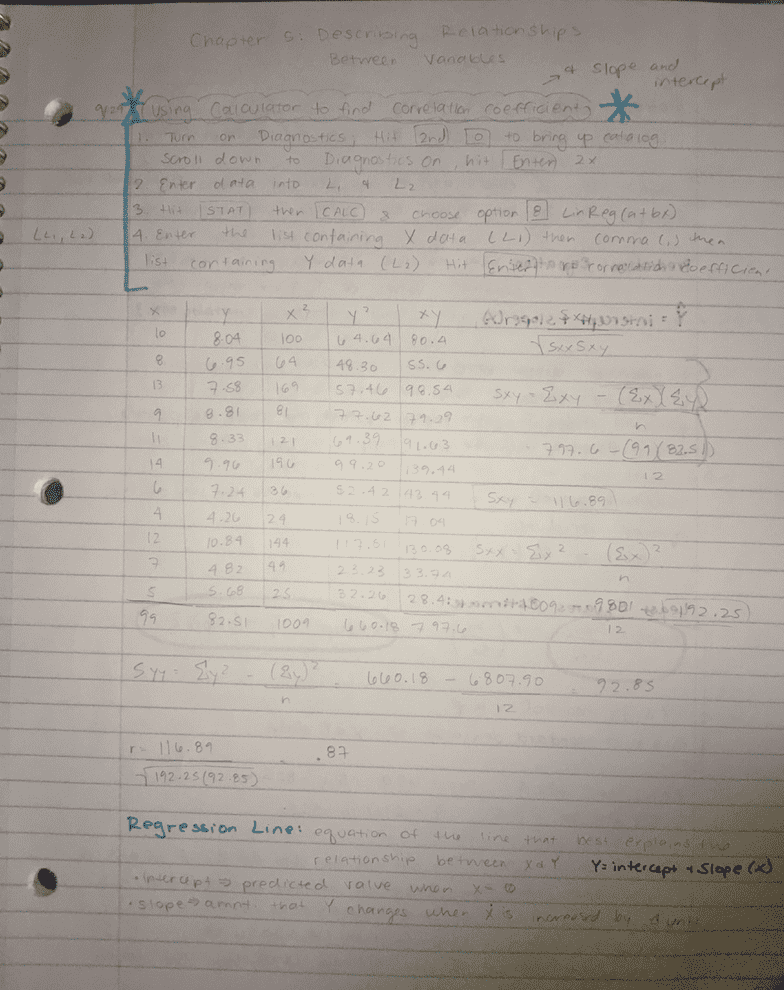 Chapter 5: Describing Relationships
Between Variables
& slope and
intercept
Using Calculator to find correlation coefficient
1. Turn on Diagnostics, Hit 2nd 0 to bring up catalog
Scroll down to Diagnostics On, hit Enter 2x
2. Enter data into L1 & L2
3. Hit STAT then CALC & choose option 8 LinReg(a+bx)
(L1, L2) 4. Enter the list containing X data (L1) then comma (,) then
list containing Y data (L2) Hit Enter
x y x² y² xy
10 8.04 100 64.64 80.4
√SxxSxy
8 6.95 64 48.30 55.6
13 7.58 169 57.46 98.54
Sxy = Σxy - (Σx)(Σy)
n
9 8.81 81 77.62 79.29
11 8.33 121 69.39 91.63
797.6 - (99)(82.51)
12
14 9.96 196 99.20 139.44
6 7.24 36 52.42 43.44
Sxy = 116.89
4 4.26 24 18.15 17.04
12 10.84 144 117.51 130.08
Sxx = Σx² - (Σx)²
n
7 4.82 49 23.23 33.74
5 5.68 25 32.26 28.4
9801
192.25
12
99 82.51 1009 660.18 797.6
Syy = Σy² - (Σy)² = 660.18 - 6807.90 = 92.85
n
12
r = 116.89 = .87
√192.25(92.85)
Regression Line: equation of the line that best explains the
relationship between x & Y Y = intercept + Slope (x)
• intercept ⇒ predicted value when x = 0
• slope ⇒ amnt that Y changes when x is increased by 1 unit